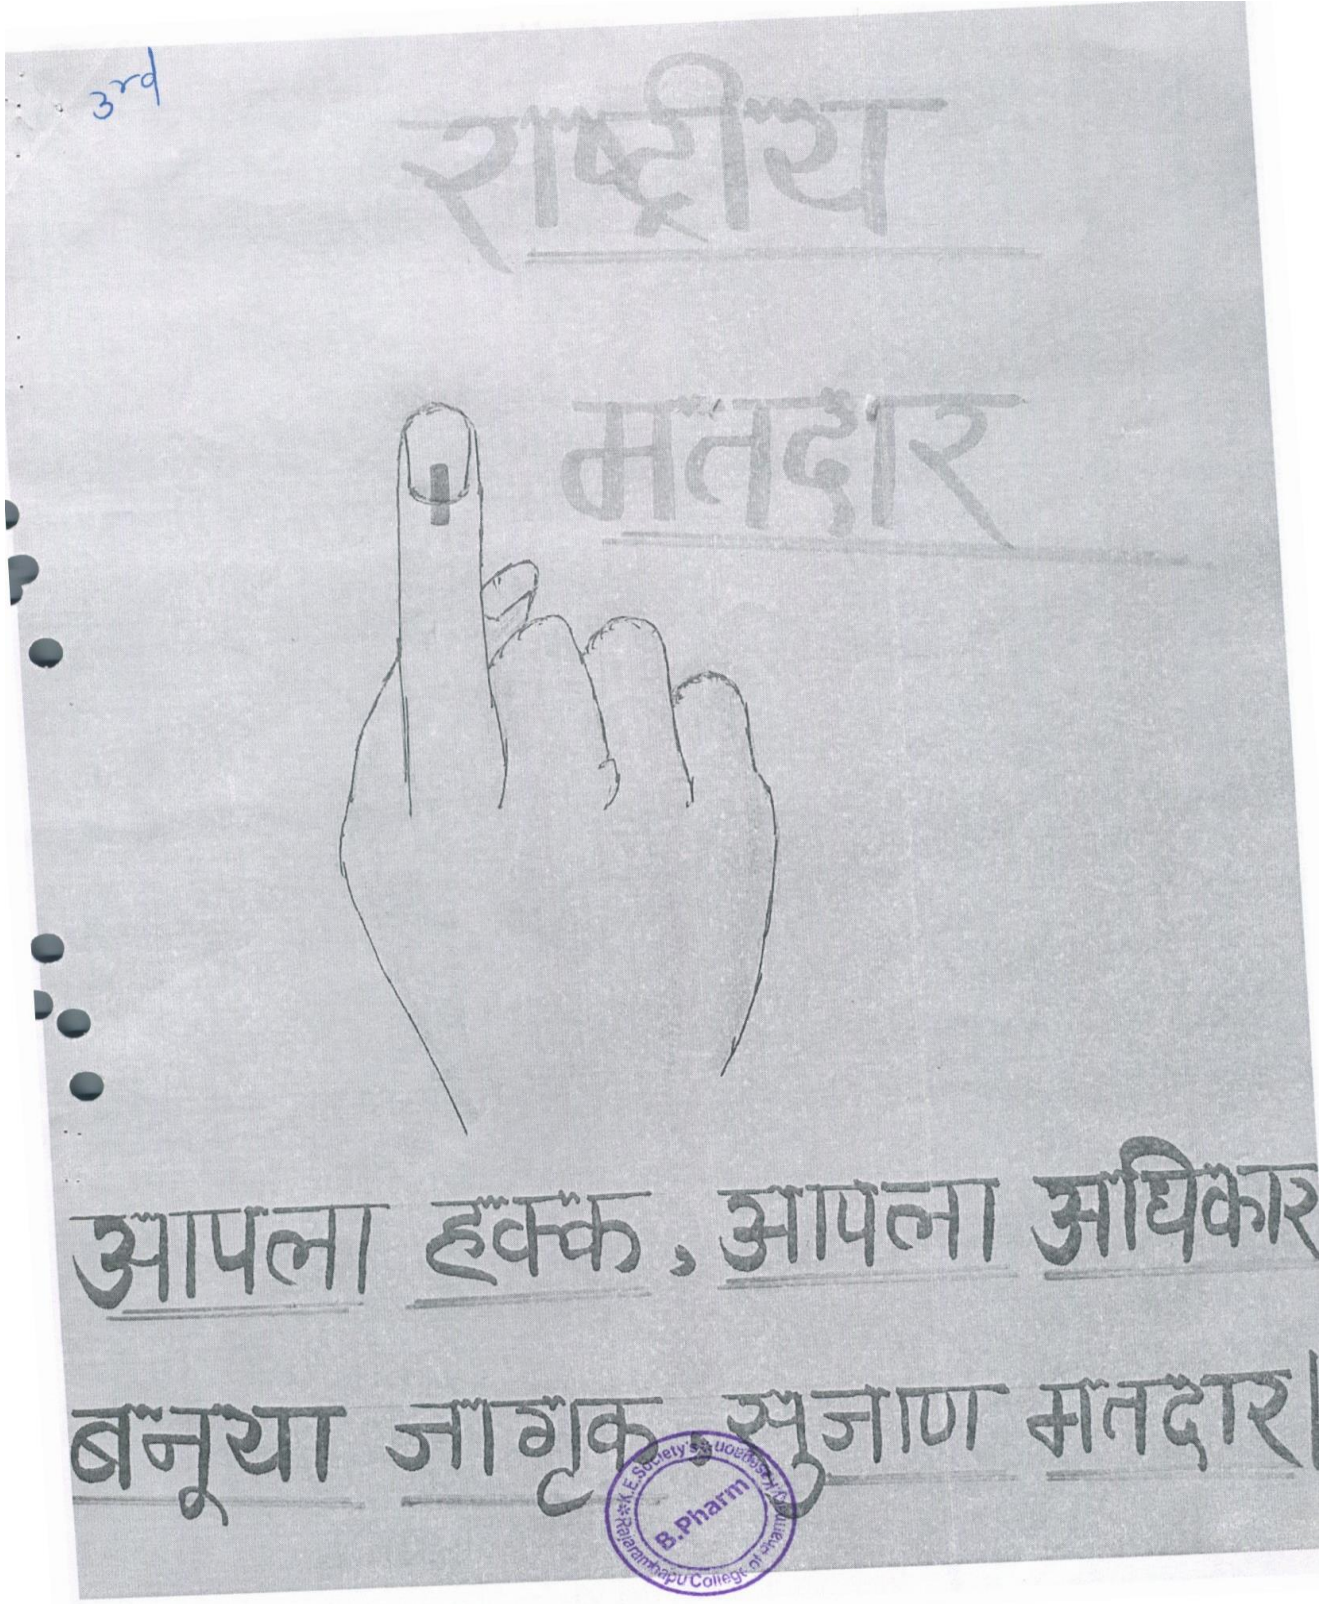 3rd
राष्ट्रीय
मतदार
आपला हक्क, आपला अधिकार
बनूया जागृक, सुजाण मतदार।
K.E. Society's Rajarambapu College of Pharmacy, Kasegaon
B.Pharm